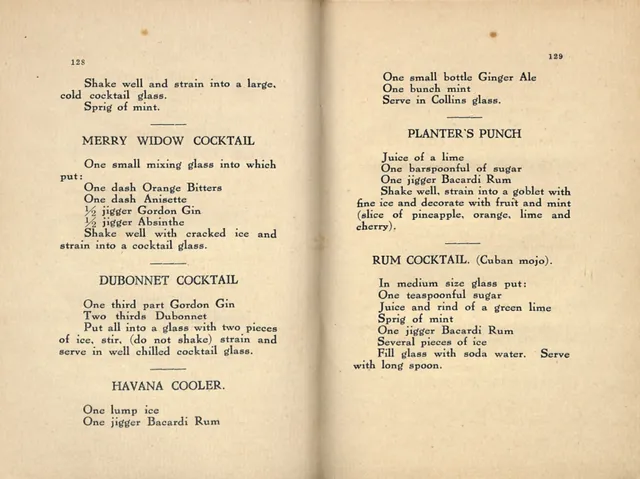 128
Shake well and strain into a large,
cold cocktail glass.
Sprig of mint.
MERRY WIDOW COCKTAIL
One small mixing glass into which
put:
One dash Orange Bitters
One dash Anisette
½ jigger Gordon Gin
½ jigger Absinthe
Shake well with cracked ice and
strain into a cocktail glass.
DUBONNET COCKTAIL
One third part Gordon Gin
Two thirds Dubonnet
Put all into a glass with two pieces
of ice, stir, (do not shake) strain and
serve in well chilled cocktail glass.
HAVANA COOLER.
One lump ice
One jigger Bacardi Rum
129
One small bottle Ginger Ale
One bunch mint
Serve in Collins glass.
PLANTER'S PUNCH
Juice of a lime
One barspoonful of sugar
One jigger Bacardi Rum
Shake well, strain into a goblet with
fine ice and decorate with fruit and mint
(slice of pineapple, orange, lime and
cherry).
RUM COCKTAIL. (Cuban mojo).
In medium size glass put:
One teaspoonful sugar
Juice and rind of a green lime
Sprig of mint
One jigger Bacardi Rum
Several pieces of ice
Fill glass with soda water. Serve
with long spoon.